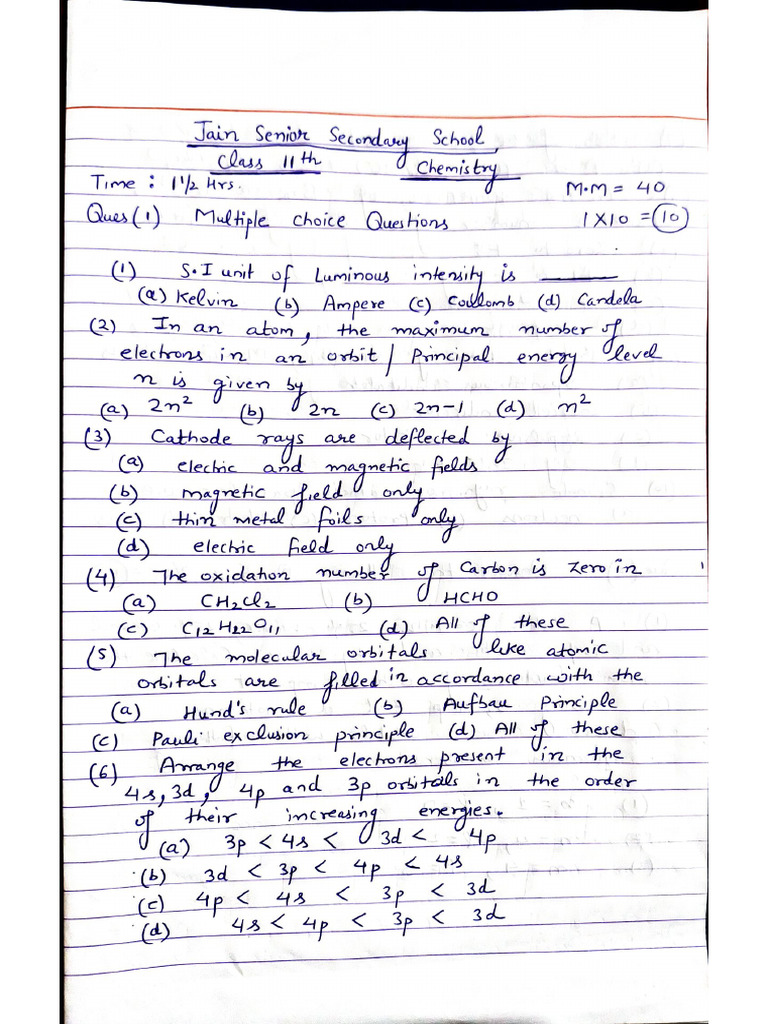 Jain Senior Secondary School,
Class 11th Chemistry
Time : 1 1/2 Hrs. M.M = 40
Ques (1) Multiple choice Questions 1 X 10 = 10
(1) S.I unit of Luminous intensity is ______
(a) Kelvin (b) Ampere (c) Coulomb (d) Candela
(2) In an atom, the maximum number of
electrons in an orbit / Principal energy level
n is given by
(a) 2n² (b) 2n (c) 2n-1 (d) n²
(3) Cathode rays are deflected by
(a) electric and magnetic fields
(b) magnetic field only
(c) thin metal foils only
(d) electric field only
(4) The oxidation number of Carbon is zero in
(a) CH2Cl2 (b) HCHO
(c) C12H22O11 (d) All of these
(5) The molecular orbitals like atomic
orbitals are filled in accordance with the
(a) Hund's rule (b) Aufbau Principle
(c) Pauli exclusion principle (d) All of these
(6) Arrange the electrons present in the
4s, 3d, 4p and 3p orbitals in the order
of their increasing energies.
(a) 3p < 4s < 3d < 4p
(b) 3d < 3p < 4p < 4s
(c) 4p < 4s < 3p < 3d
(d) 4s < 4p < 3p < 3d